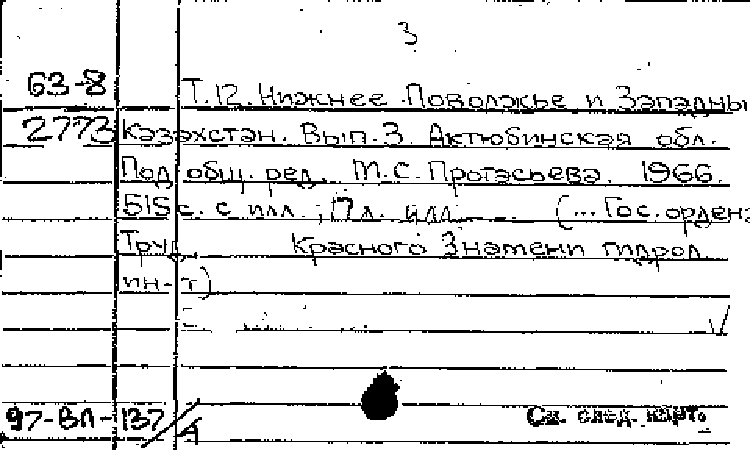 3
63-8 Т.12. Нижнее Поволжье и Западны
2773 Казахстан. Вып.3. Актюбинская обл.
Под общ. ред. М.С. Протасьева. 1966.
515 с. с илл.; 17 л. илл. (... Гос. ордена
Труд. Красного Знамени гидрол.
ин-т)
97-ВЛ-137 А См. след. карт.